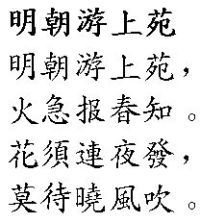 明朝游上苑
明朝游上苑，
火急报春知。
花須連夜發，
莫待曉風吹。